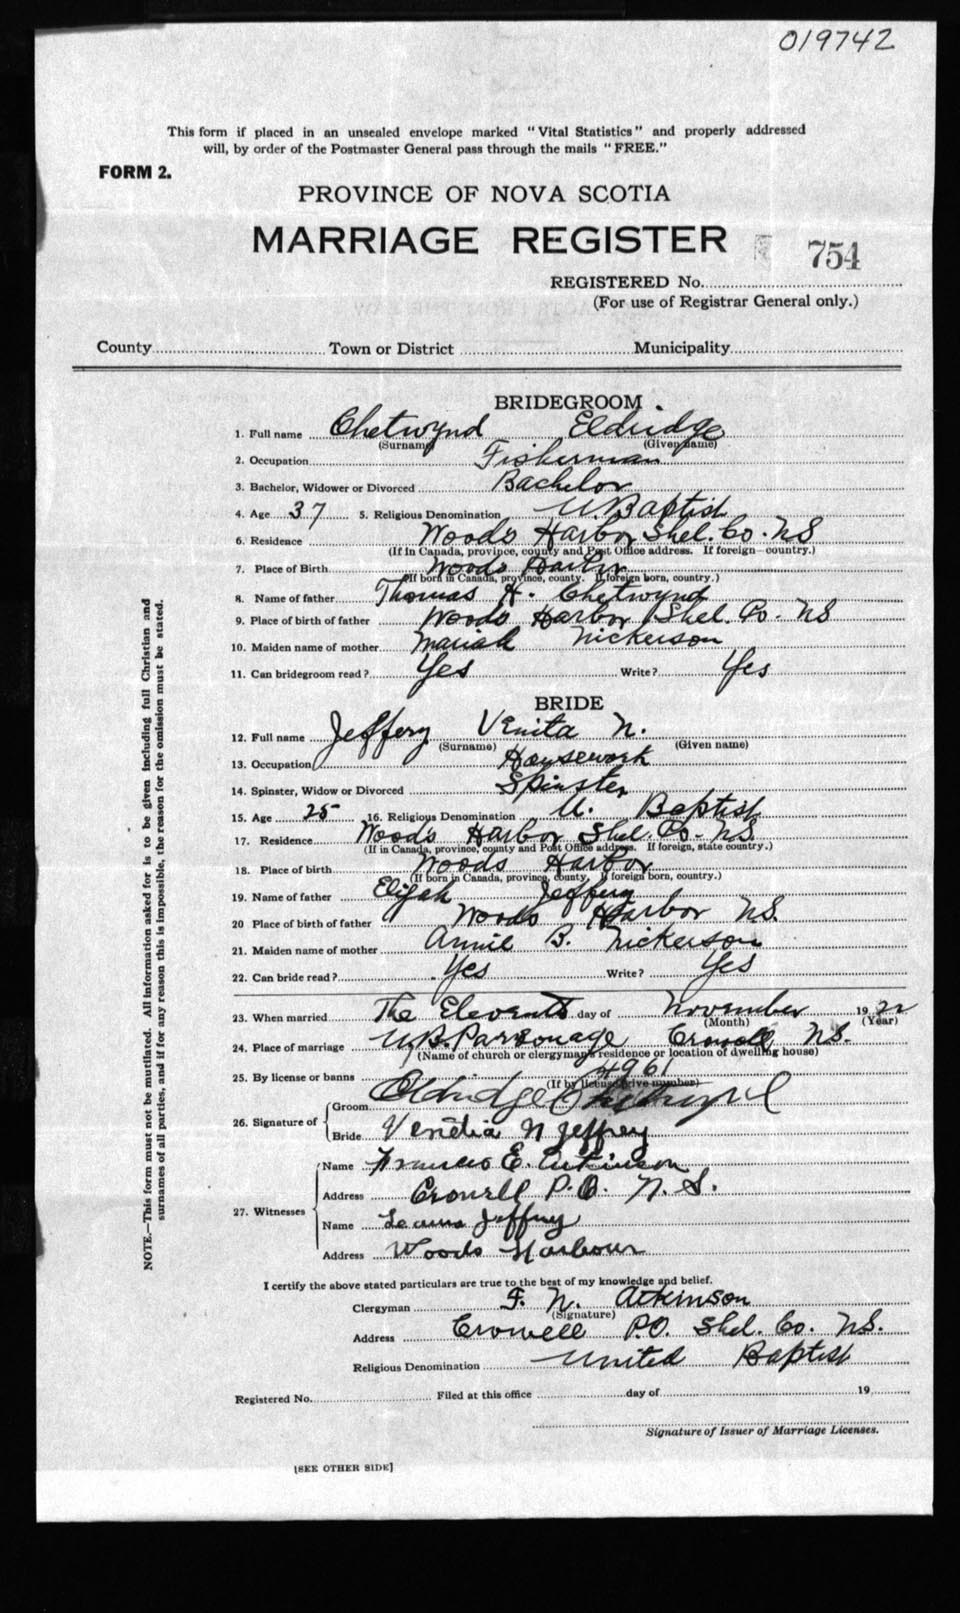 019742
This form if placed in an unsealed envelope marked "Vital Statistics" and properly addressed
will, by order of the Postmaster General pass through the mails "FREE."
FORM 2.
PROVINCE OF NOVA SCOTIA
MARRIAGE REGISTER 754
REGISTERED No.
(For use of Registrar General only.)
County Town or District Municipality
BRIDEGROOM
1. Full name Chetwynd Eldridge
(Surname) (Given name)
2. Occupation Fisherman
3. Bachelor, Widower or Divorced Bachelor
4. Age 37 5. Religious Denomination U. Baptist
6. Residence Woods Harbor Shel. Co. NS
(If in Canada, province, county and Post Office address. If foreign country.)
7. Place of Birth Woods Harbor
(If born in Canada, province, county. If foreign born, country.)
8. Name of father Thomas H. Chetwynd
9. Place of birth of father Woods Harbor Shel. Co. NS
10. Maiden name of mother Mariah Nickerson
11. Can bridegroom read? Yes Write? Yes
BRIDE
12. Full name Jeffery Venita N.
(Surname) (Given name)
13. Occupation Housework
14. Spinster, Widow or Divorced Spinster
15. Age 25 16. Religious Denomination U. Baptist
17. Residence Woods Harbor Shel. Co. NS.
(If in Canada, province, county and Post Office address. If foreign, state country.)
18. Place of birth Woods Harbor
(If born in Canada, province, county. If foreign born, country.)
19. Name of father Elijah Jeffery
20 Place of birth of father Woods Harbor NS.
21. Maiden name of mother Annie B. Nickerson
22. Can bride read? Yes Write? Yes
23. When married The Eleventh day of November 1922
(Month) (Year)
24. Place of marriage U.B. Parsonage Crowell NS.
(Name of church or clergyman's residence or location of dwelling house)
25. By license or banns 4961
(If by license give number)
26. Signature of Groom Eldridge Chetwynd
Bride Venetia N Jeffrey
27. Witnesses Name Frances E. Atkinson
Address Crowell P.O. N.S.
Name Jeffrey
Address Woods Harbour
I certify the above stated particulars are true to the best of my knowledge and belief.
Clergyman F. N. Atkinson
(Signature)
Address Crowell P.O. Shel. Co. NS.
Religious Denomination United Baptist
Registered No. Filed at this office day of 19
Signature of Issuer of Marriage Licenses.
[SEE OTHER SIDE]
NOTE.—This form must not be mutilated. All information asked for is to be given including full Christian and
surnames of all parties, and if for any reason this is impossible, the reason for the omission must be stated.